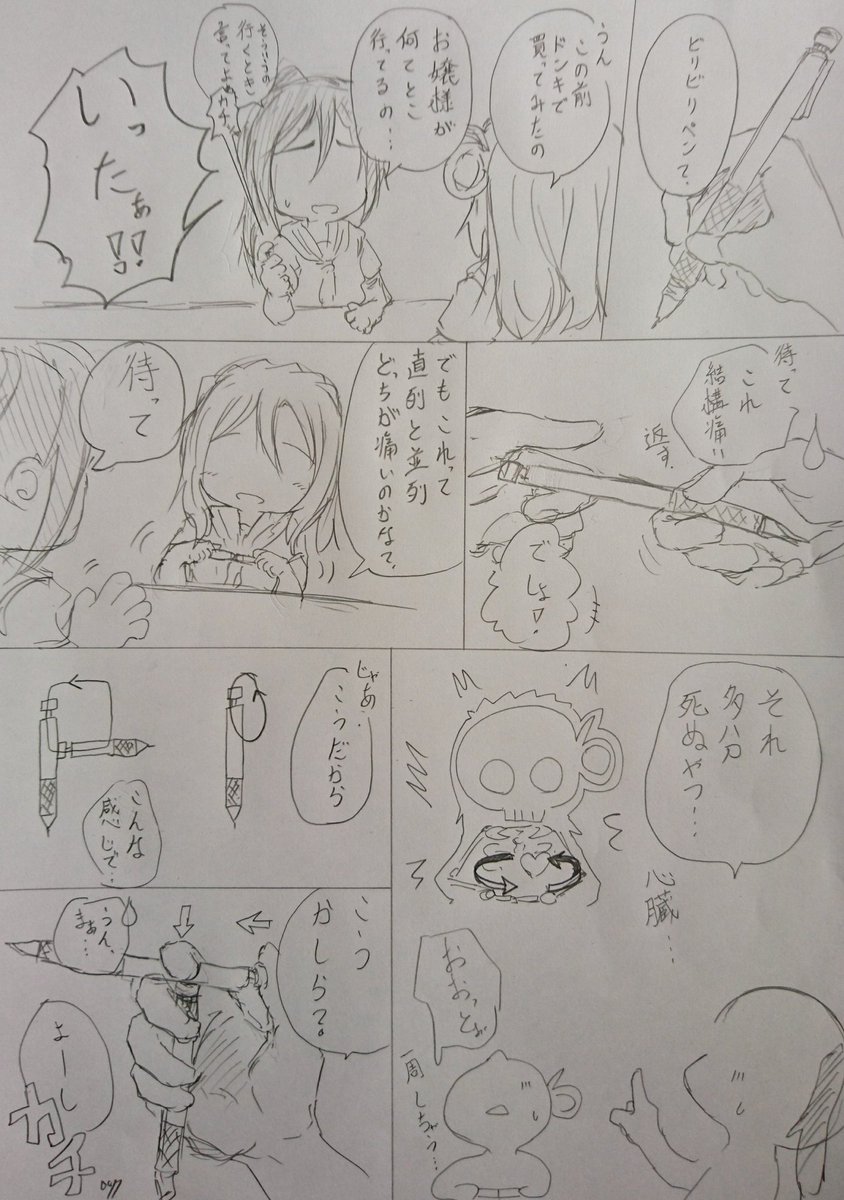 ビリビリペンて、
うん
この前
ドンキで
買ってみたの
お嬢様が
何てとこ
行ってるの…
行くとき
言ってよぉ
カチ
いっ
たぁ
!!
待って
これ
結構痛い
返す。
でしょ!
でもこれって
直列と並列
どっちが痛いのかな?
待って
それ
多分
死ぬやつ…
心臓…
おおっとぉ
一周しちゃう…
じゃあ…
こうだから
こんな
感じで…
こう
かしら?
うん、
まぁ…
よーし
カチ